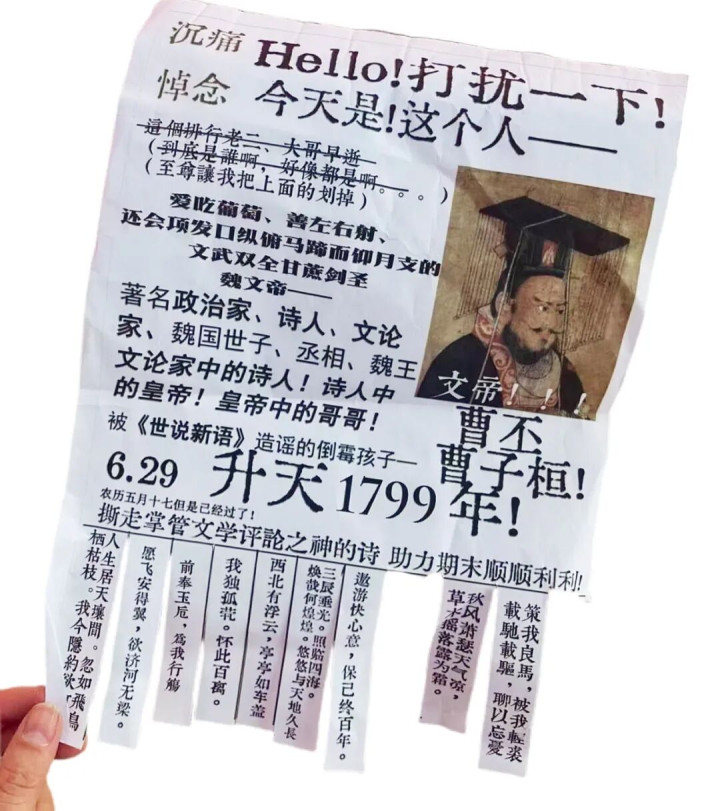 沉痛
悼念
Hello!打扰一下!
今天是!这个人——
這個排行老二、大哥早逝
(到底是誰啊,好像都是啊。。。)
(至尊讓我把上面的划掉)
爱吃葡萄、善左右射、
还会项发口纵俯马蹄而仰月支的
文武双全甘蔗剑圣
魏文帝——
著名政治家、诗人、文论
家、魏国世子、丞相、魏王
文论家中的诗人!诗人中
的皇帝!皇帝中的哥哥!
被《世说新语》造谣的倒霉孩子—
文帝!!!
曹丕
曹子桓!
6.29 升天1799年!
农历五月十七但是已经过了!
撕走掌管文学评論之神的诗 助力期末顺顺利利!
人生居天壤間。忽如飛鳥
栖枯枝。我今隱約欲何
愿飞安得翼,欲济河无梁。
前奉玉卮,爲我行觴
我独孤茕。怀此百离。
西北有浮云,亭亭如车盖
三辰垂光。照临四海。
焕哉何煌煌。悠悠与天地久長
遨游快心意,保己终百年。
秋风萧瑟天气凉,
草木摇落露为霜。
策我良馬,被我輕裘
載馳載驅,聊以忘憂